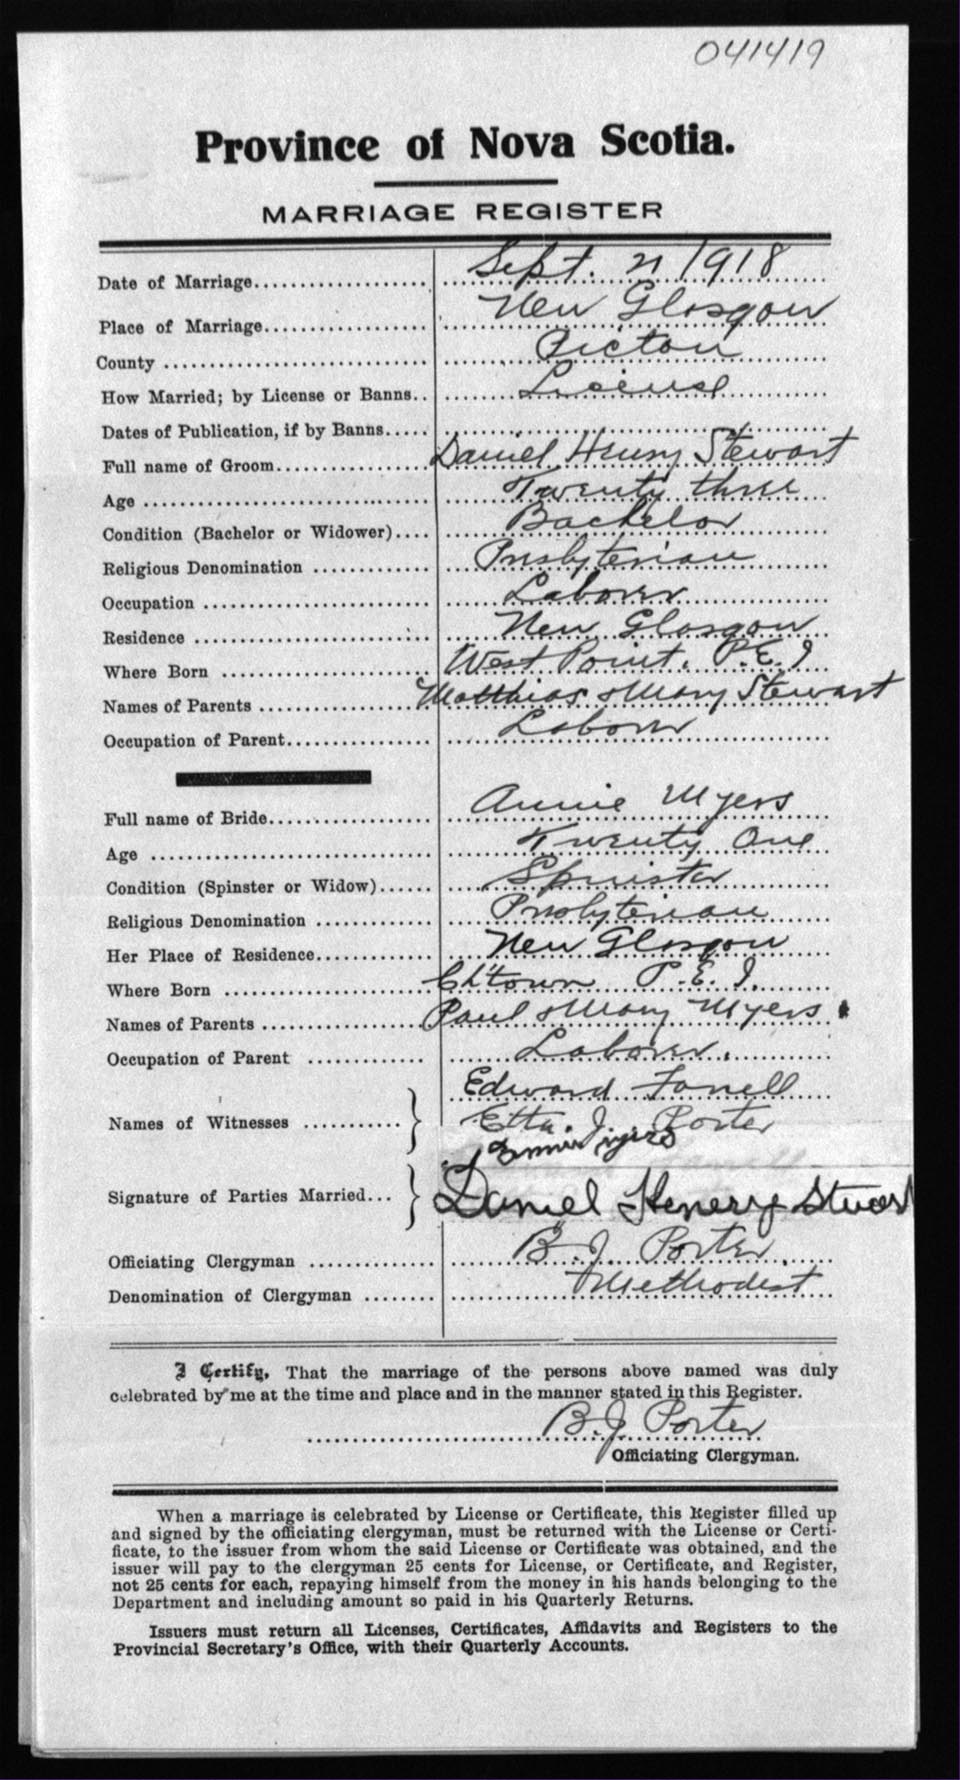 041419
Province of Nova Scotia.
MARRIAGE REGISTER
Date of Marriage.................... Sept. 21 1918
Place of Marriage.................. New Glasgow
County ............................. Pictou
How Married; by License or Banns.. License
Dates of Publication, if by Banns.....
Full name of Groom................ Daniel Henry Stewart
Age ................................ Twenty three
Condition (Bachelor or Widower).... Bachelor
Religious Denomination ............. Presbyterian
Occupation ......................... Laborer
Residence .......................... New Glasgow
Where Born ....................... West Point. P.E.I
Names of Parents ................. Matthias & Mary Stewart
Occupation of Parent............... Laborer
Full name of Bride.................. Annie Myers
Age ................................ Twenty One
Condition (Spinster or Widow)...... Spinster
Religious Denomination ............. Presbyterian
Her Place of Residence............. New Glasgow
Where Born ....................... Ch'town P.E.I.
Names of Parents ................. Paul & Mary Myers
Occupation of Parent ............. Laborer.
Edward Farrell
Names of Witnesses ........... Etta. J. Porter
Annie Myers
Signature of Parties Married... Daniel Henery Stuart
Officiating Clergyman .............. B. J. Porter
Denomination of Clergyman ........ Methodist
I Certify, That the marriage of the persons above named was duly
celebrated by me at the time and place and in the manner stated in this Register.
B. J. Porter
Officiating Clergyman.
When a marriage is celebrated by License or Certificate, this Register filled up
and signed by the officiating clergyman, must be returned with the License or Certi-
ficate, to the issuer from whom the said License or Certificate was obtained, and the
issuer will pay to the clergyman 25 cents for License, or Certificate, and Register,
not 25 cents for each, repaying himself from the money in his hands belonging to the
Department and including amount so paid in his Quarterly Returns.
Issuers must return all Licenses, Certificates, Affidavits and Registers to the
Provincial Secretary's Office, with their Quarterly Accounts.